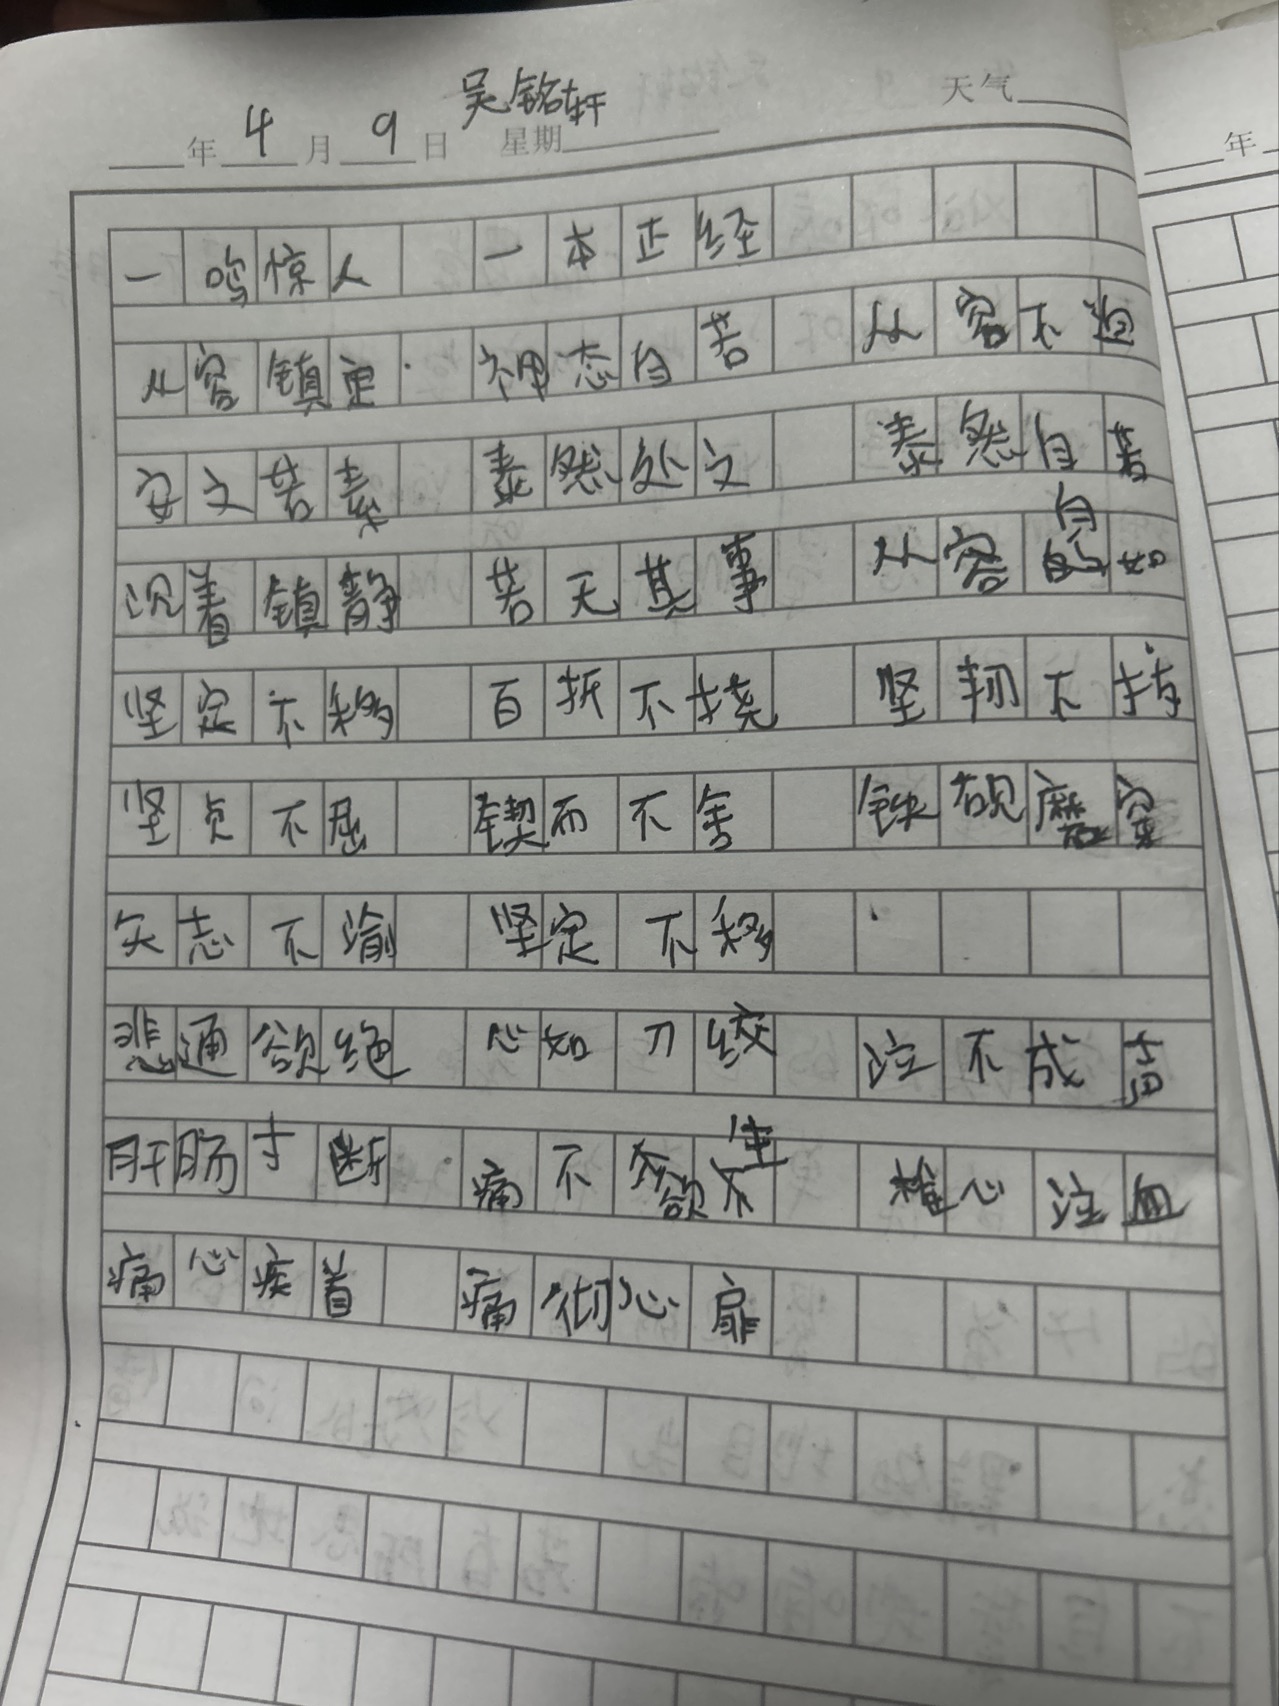 吴铭轩
年 4 月 9 日 星期 天气
年
一鸣惊人 一本正经
从容镇定 神态自若 从容不迫
安之若素 泰然处之 泰然自若
沉着镇静 若无其事 从容自如
坚定不移 百折不挠 坚韧不拔
坚贞不屈 锲而不舍 铁砚磨穿
矢志不渝 坚定不移
悲通欲绝 心如刀绞 泣不成声
肝肠寸断 痛不欲生 椎心泣血
痛心疾首 痛彻心扉